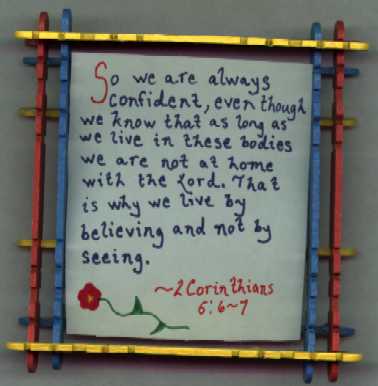 So we are always
confident, even though
we know that as long as
we live in these bodies
we are not at home
with the Lord. That
is why we live by
believing and not by
seeing.
~2 Corinthians
5:6~7